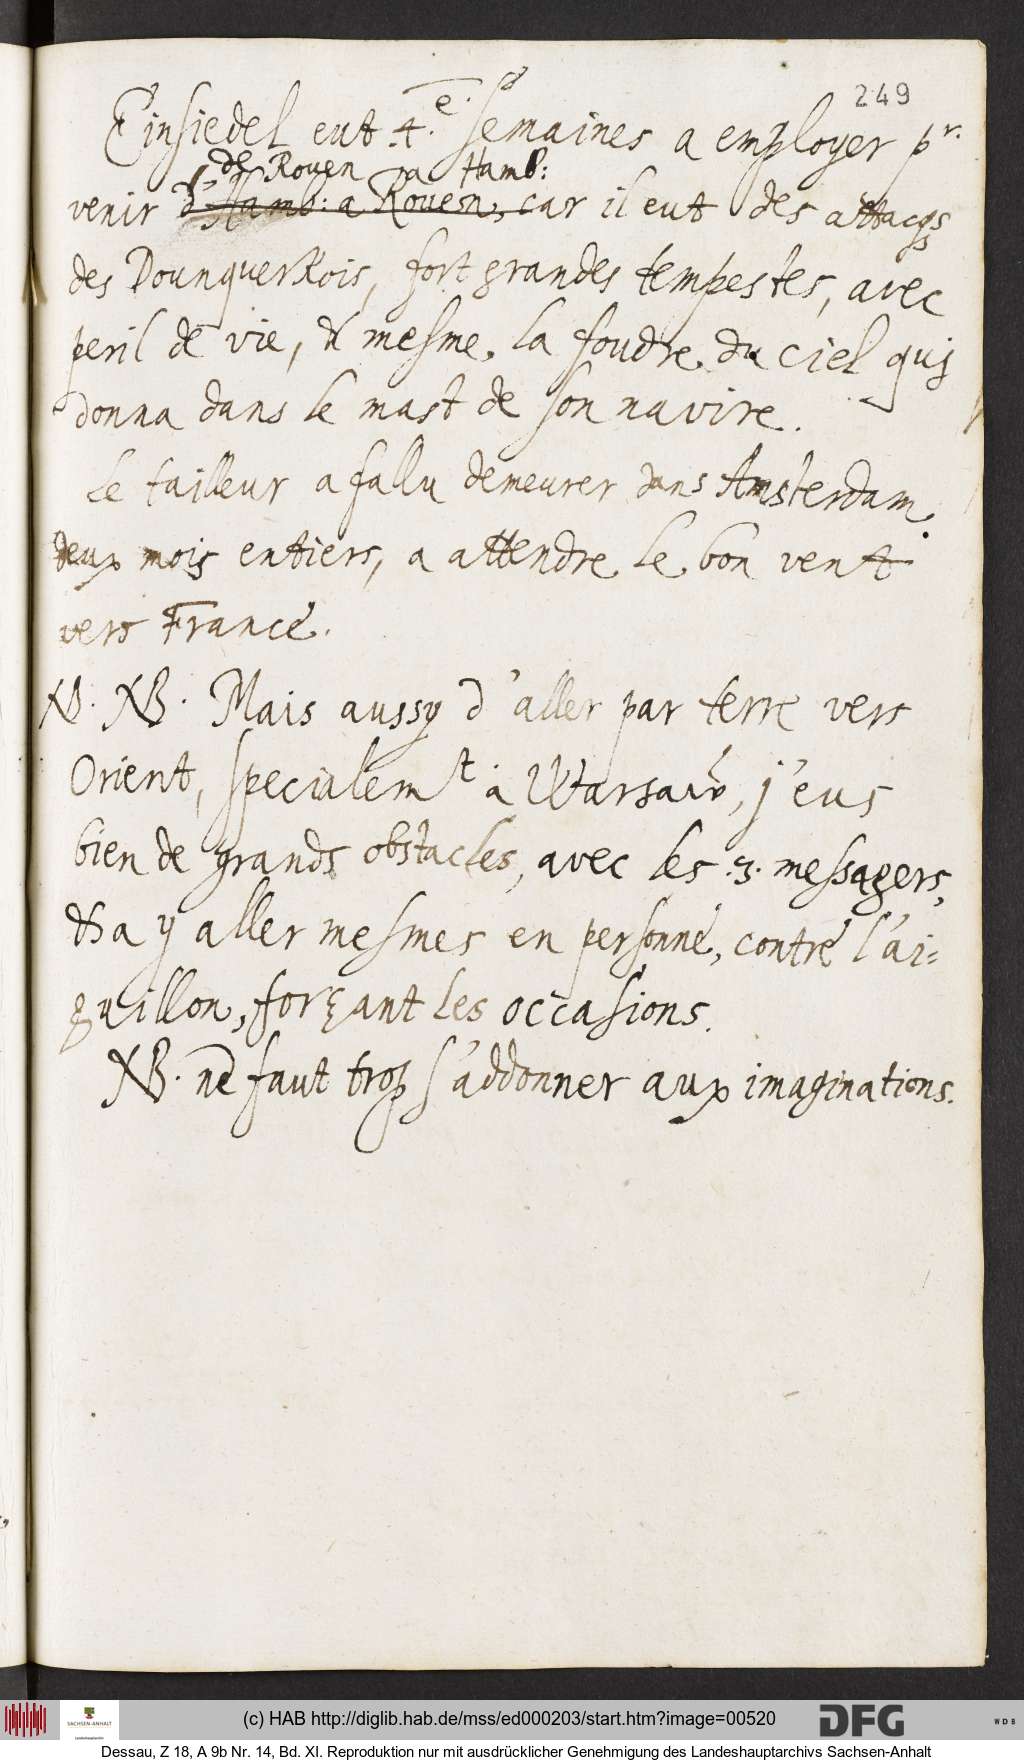 249
Einsiedel eut 4.e semaines a employer pr.
de Rouen a Hamb:
venir d'Hamb: a Rouen, car il eut des attacqs
des Dounquerkois, fort grandes tempestes, avec
peril de vie, & mesme la foudre du ciel quj
donna dans le mast de son navire.
Le tailleur a fallu demeurer dans Amsterdam
deux mois entiers, a attendre le bon vent
vers France.
NB. NB. Mais aussy d'aller par terre vers
Orient, specialemt à Warsaw, j'eus
bien de grands obstacles, avec les .3. messagers,
& a y aller mesmes en personne, contre l'ai=
guillon, forçant les occasions.
NB. ne faut trop s'addonner aux imaginations.
SACHSEN-ANHALT
(c) HAB http://diglib.hab.de/mss/ed000203/start.htm?image=00520
DFG
WDB
Dessau, Z 18, A 9b Nr. 14, Bd. XI. Reproduktion nur mit ausdrücklicher Genehmigung des Landeshauptarchivs Sachsen-Anhalt